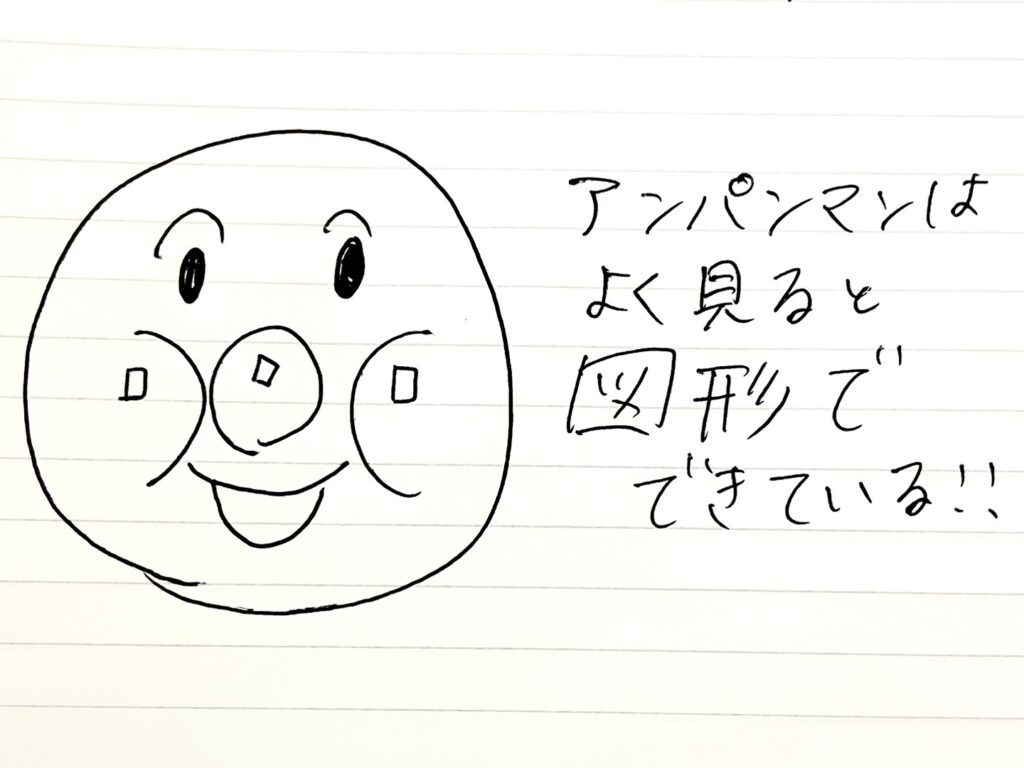 アンパンマンは
よく見ると
図形で
できている!!